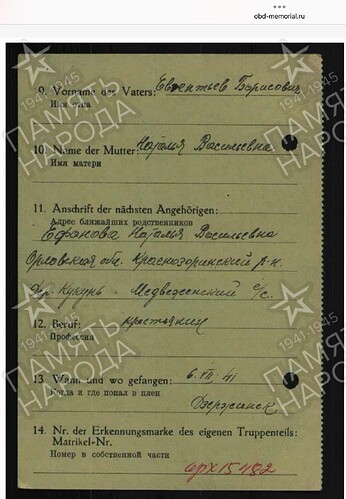 obd-memorial.ru
9. Vorname des Vaters: Евентьев Борисович
Имя отца
10. Name der Mutter: Наталия Васильевна
Имя матери
11. Anschrift der nächsten Angehörigen:
Адрес ближайших родственников
Ефанова Наталья Васильевна
Орловская обл. Краснозоринский р-н
дер. Кукунь - Медвеженский с/с.
12. Beruf: крестьянин
Профессия
13. Wann und wo gefangen: 6.VII.41
Когда и где попал в плен
Дзержинск
14. Nr. der Erkennungsmarke des eigenen Truppenteils:
Matrikel-Nr.
Номер в собственной части
арх15482
1941-1945
ПАМЯТЬ
НАРОДА